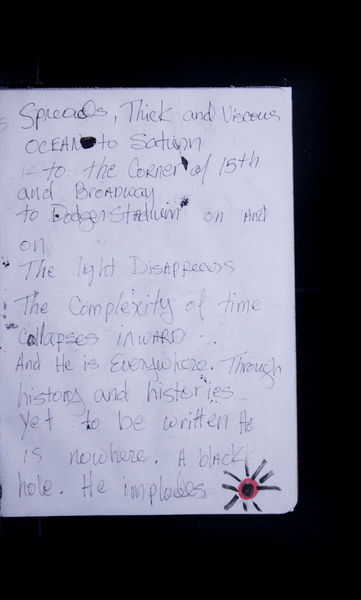 Spreads, Thick and Viscous
OCEAN to Saturn
to the Corner of 15th
and Broadway
to Dodger Stadium on And
on
The light Disappears
The Complexity of time
Collapses inWARD.
And He is Everywhere. Through
history and histories
Yet to be written He
is nowhere. A black
hole. He implodes